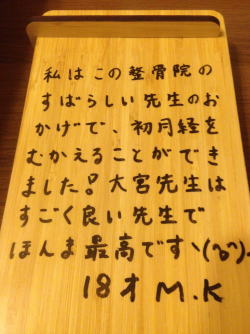 私はこの整骨院の
すばらしい先生のお
かげで、初月経を
むかえることができ
ました!大宮先生は
すごく良い先生で
ほんま最高ですヽ(^o^)丿
18才 M.K